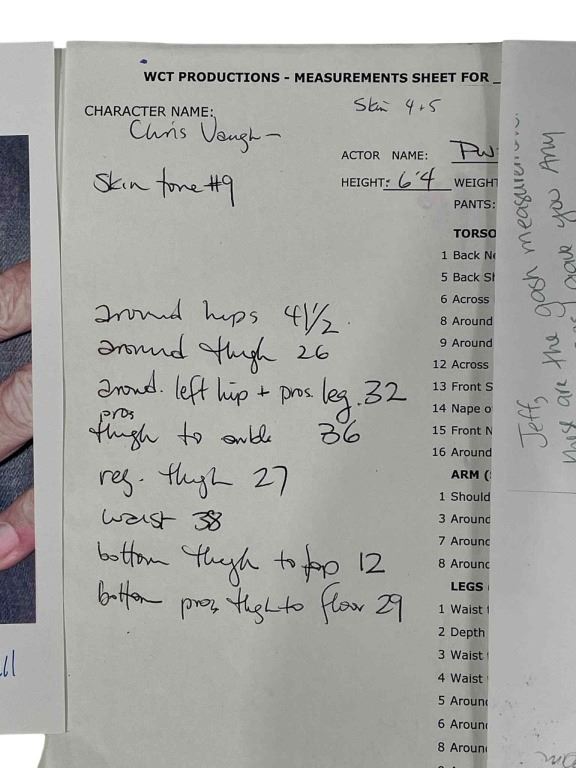 WCT PRODUCTIONS - MEASUREMENTS SHEET FOR
Skin 4+5
CHARACTER NAME:
Chris Vaughn
ACTOR NAME:
Skin tone #9
HEIGHT: 6'4 WEIGHT
PANTS:
TORSO
1 Back Ne
5 Back Sh
6 Across
8 Around
9 Around
12 Across
13 Front S
14 Nape o
15 Front N
16 Around
ARM (
1 Should
3 Around
7 Around
8 Around
LEGS
1 Waist
2 Depth
3 Waist
4 Waist
5 Around
6 Around
8 Around
around hips 41 1/2
around thigh 26
around. left hip + pros. leg. 32
pros
thigh to ankle 36
reg. thigh 27
waist 38
bottom thigh to top 12
bottom pros, thigh to floor 29
Jeff,
these are the gash measurements.
gave you any